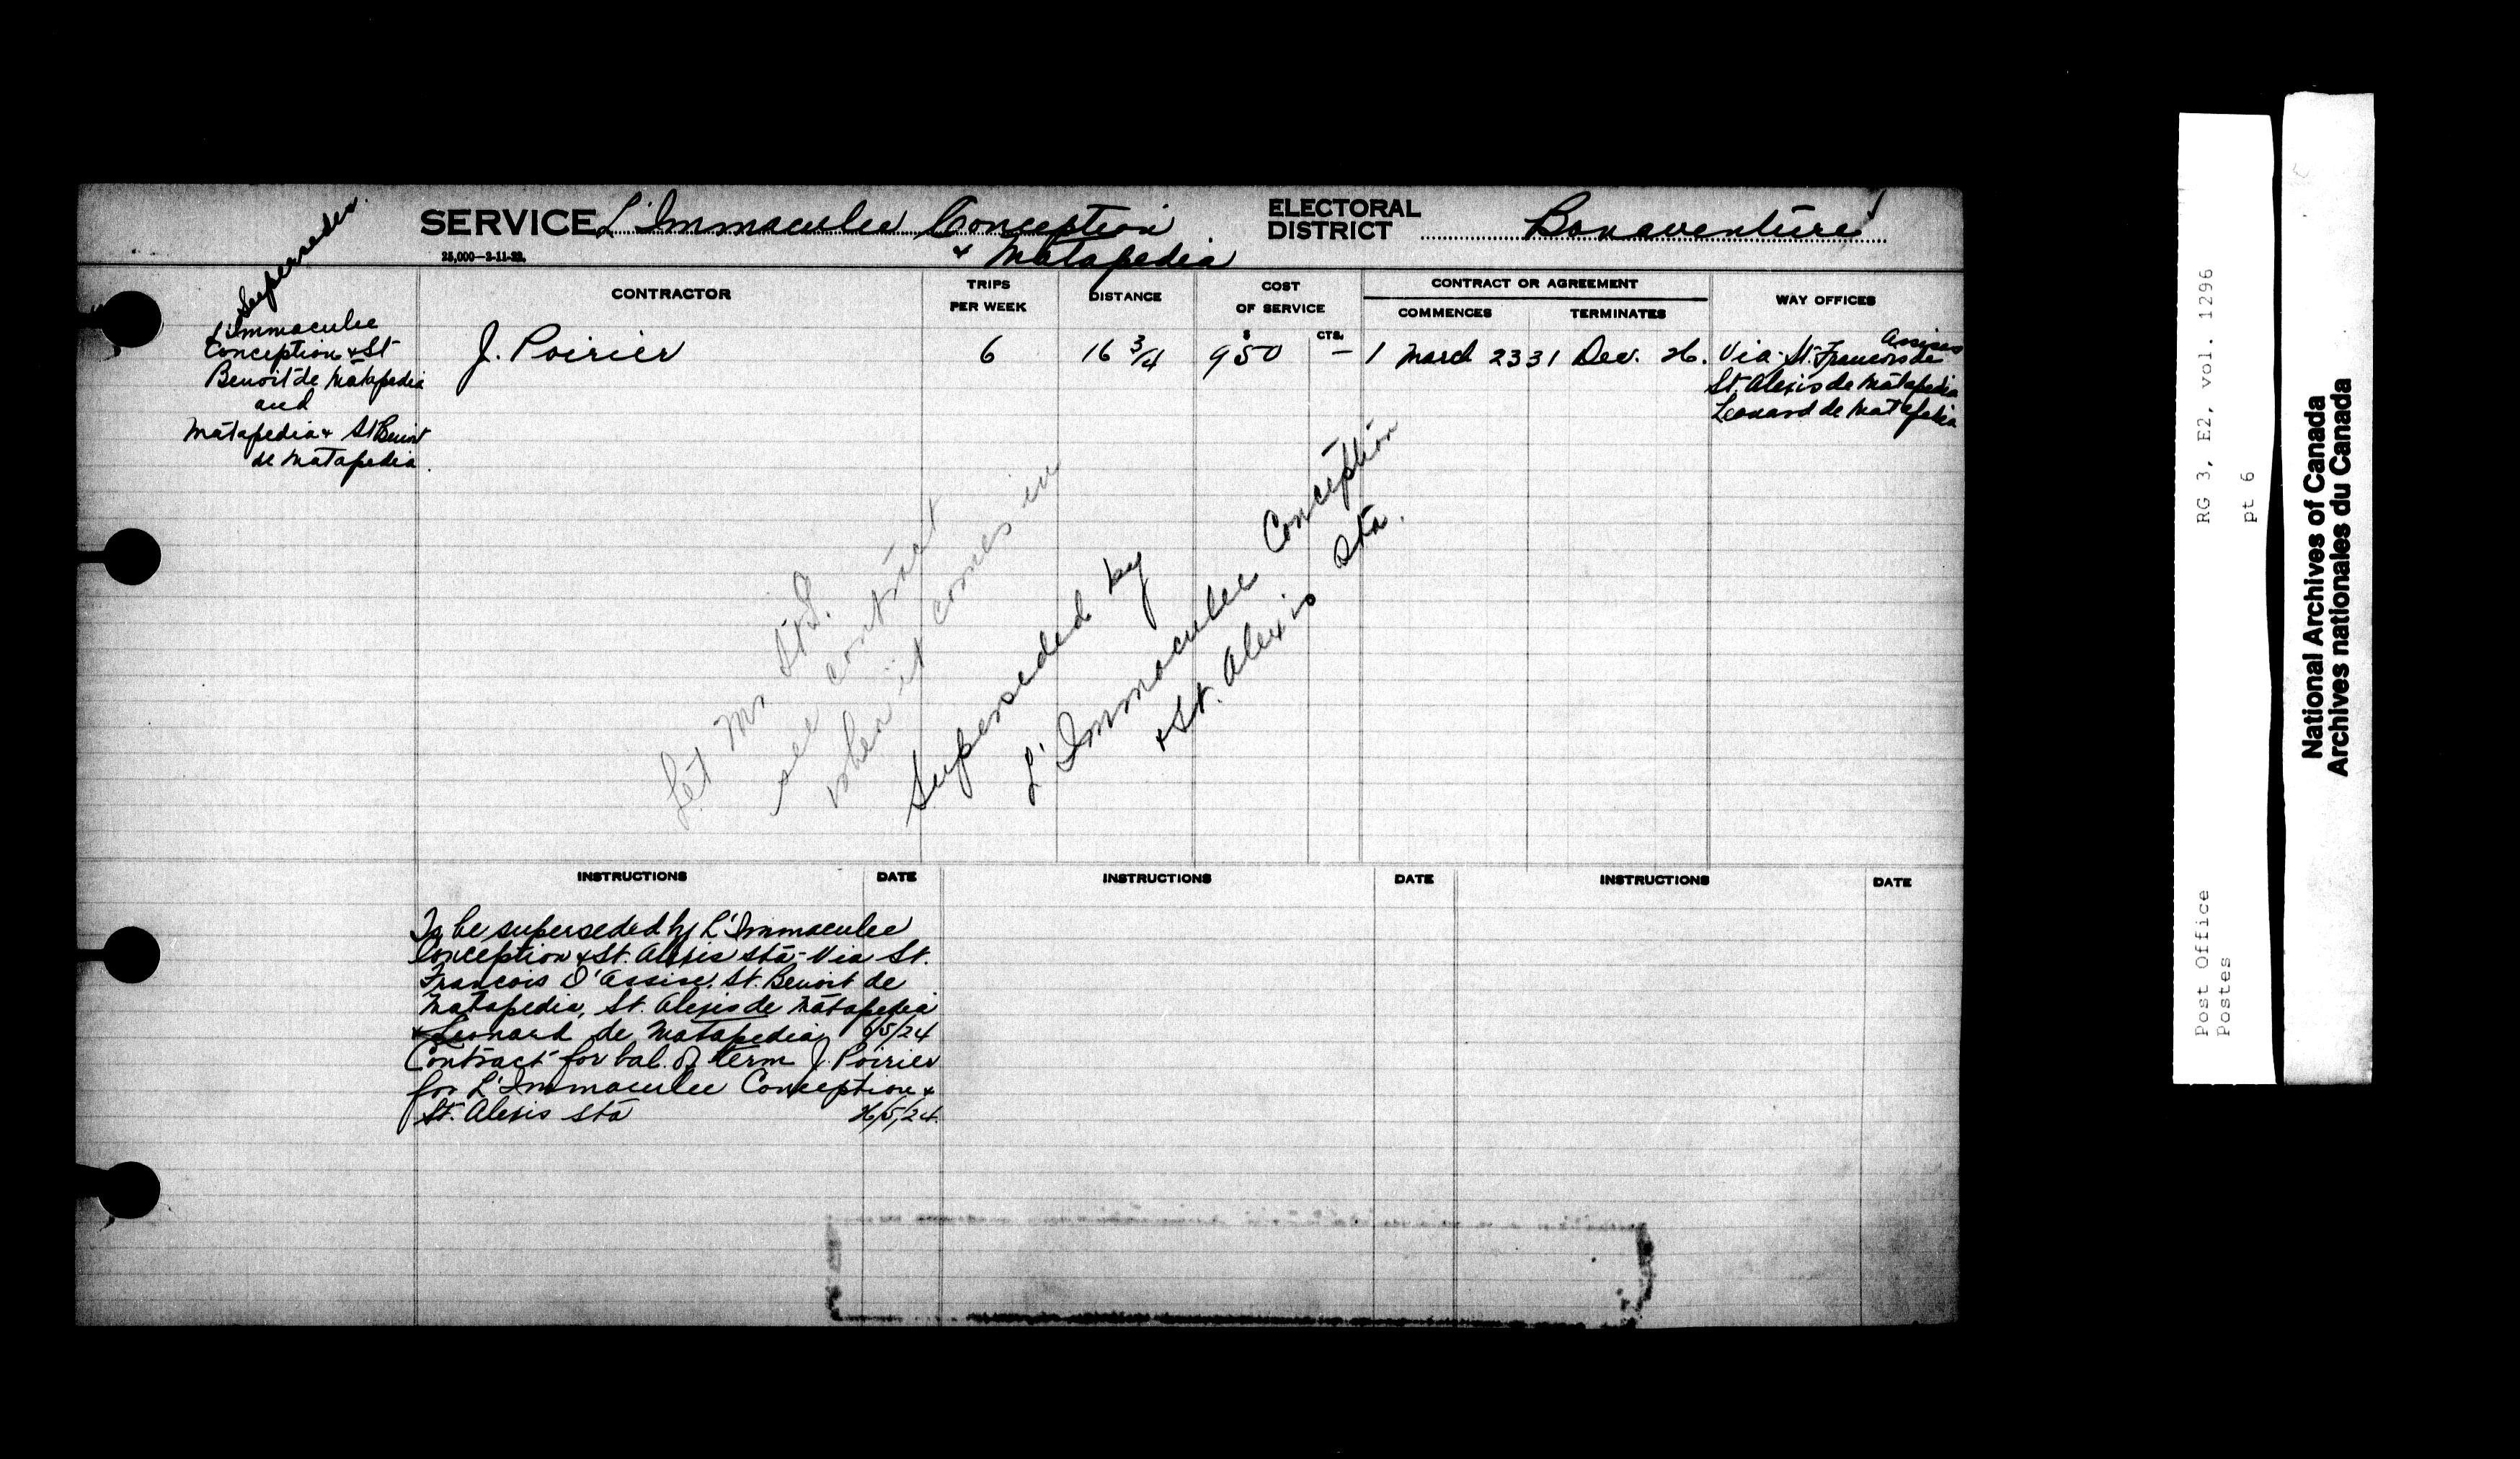 SERVICE L'Immaculee Conception
& Matapedia
25,000—2-11-22.
ELECTORAL
DISTRICT Bonaventure
Supersedes
L'Immaculee
Conception & St
Benoit de Matapedia
and
Matapedia & St Benoit
de Matapedia.
CONTRACTOR
TRIPS
PER WEEK
DISTANCE
COST
OF SERVICE
$ CTS.
CONTRACT OR AGREEMENT
COMMENCES TERMINATES
WAY OFFICES
J. Poirier 6 16 3/4 950 — 1 March 23 31 Dec. 26.
Via St. Francois de Assises
St. Alexis de Matapedia
Leonard de Matapedia
Let Mr St L.
see contract
when it comes in
Superseded by
L'Immaculee Conception
& St. Alexis Sta.
INSTRUCTIONS DATE INSTRUCTIONS DATE INSTRUCTIONS DATE
To be superseded by L'Immaculee
Conception & St. Alexis Sta - Via St.
Francois D'Assise, St. Benoit de
Matapedia, St. Alexis de Matapedia
& Leonard de Matapedia 6/5/24
Contract for bal. of term J. Poirier
for L'Immaculee Conception &
St. Alexis Sta 26/5/24.
RG 3, E2, vol. 1296
pt 6
Post Office
Postes
National Archives of Canada
Archives nationales du Canada